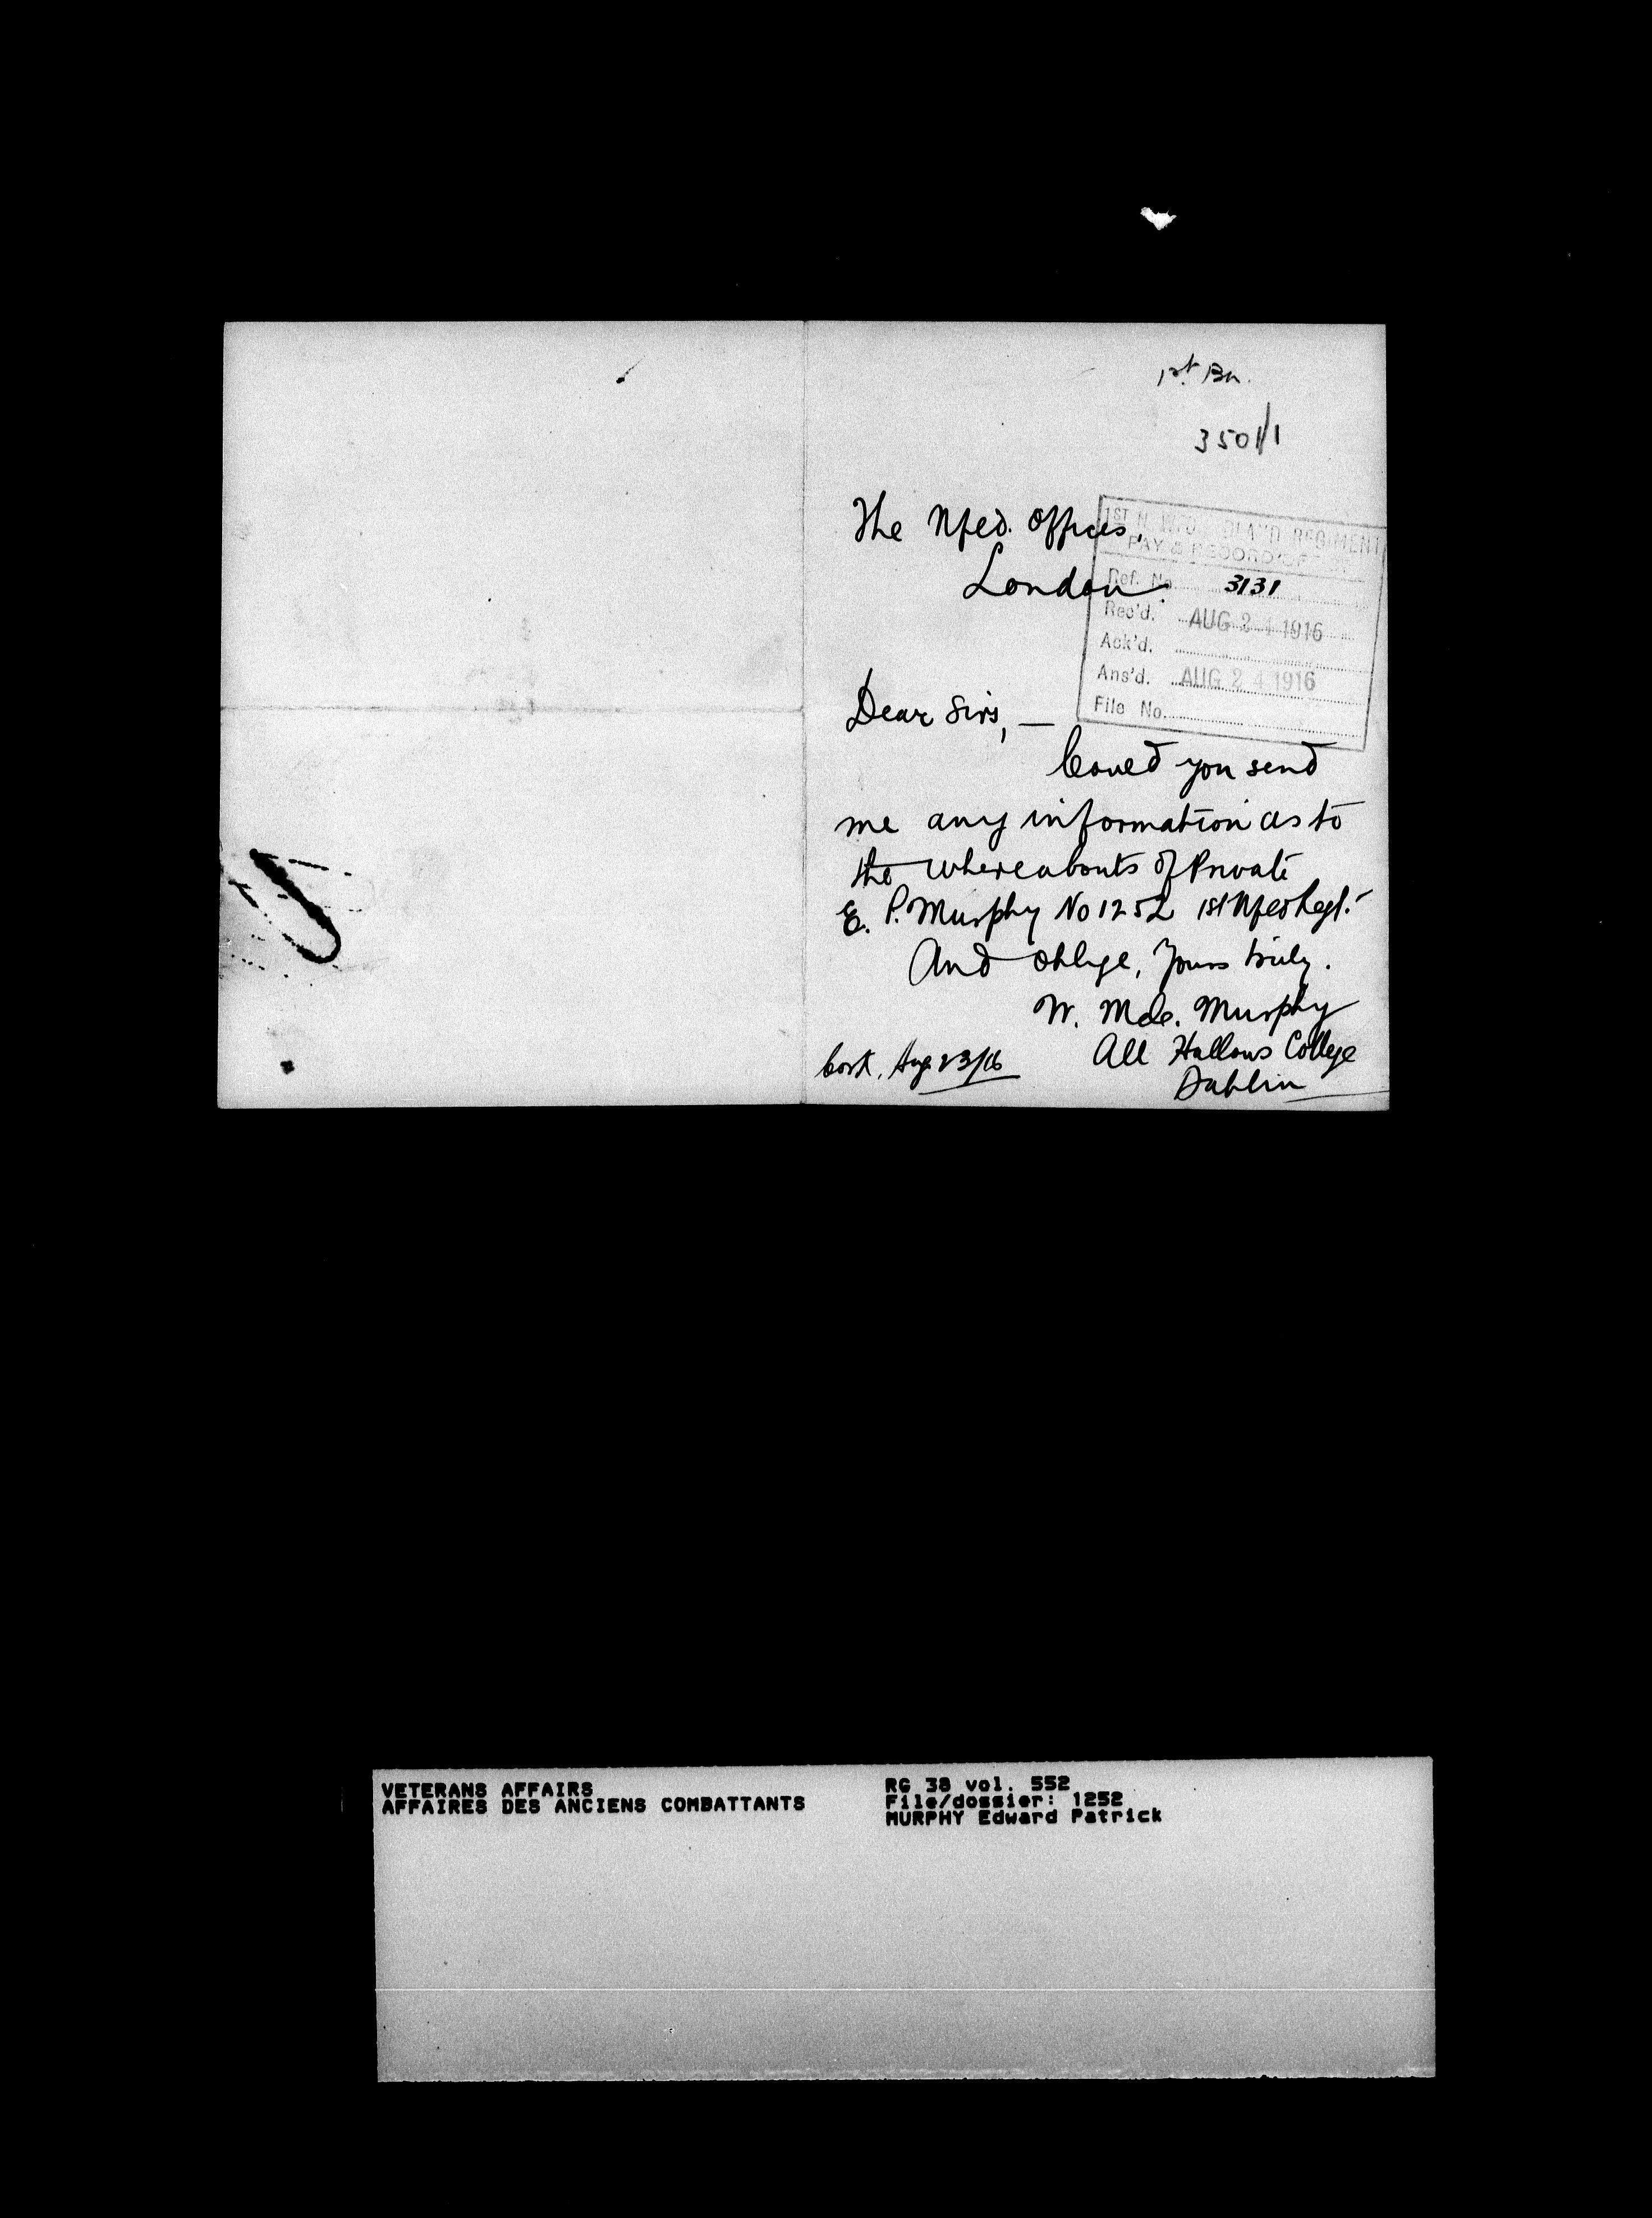 1st. Bn.
3501/1
The Nfld. Offices,
London.
1ST NEWFOUNDLAND REGIMENT
PAY & RECORD OFFICE
Ref. No. 3131
Rec'd. AUG 24 1916
Ack'd.
Ans'd. AUG 24 1916
File No.
Dear Sirs, —
Could you send
me any information as to
the whereabouts of Private
E. P. Murphy No 1252 1st Nfld Regt.
And oblige, Yours truly.
W. Murphy
All Hallows College
Dublin
Cork, Aug 23/16
VETERANS AFFAIRS
AFFAIRES DES ANCIENS COMBATTANTS
RG 38 vol. 552
File/dossier: 1252
MURPHY Edward Patrick